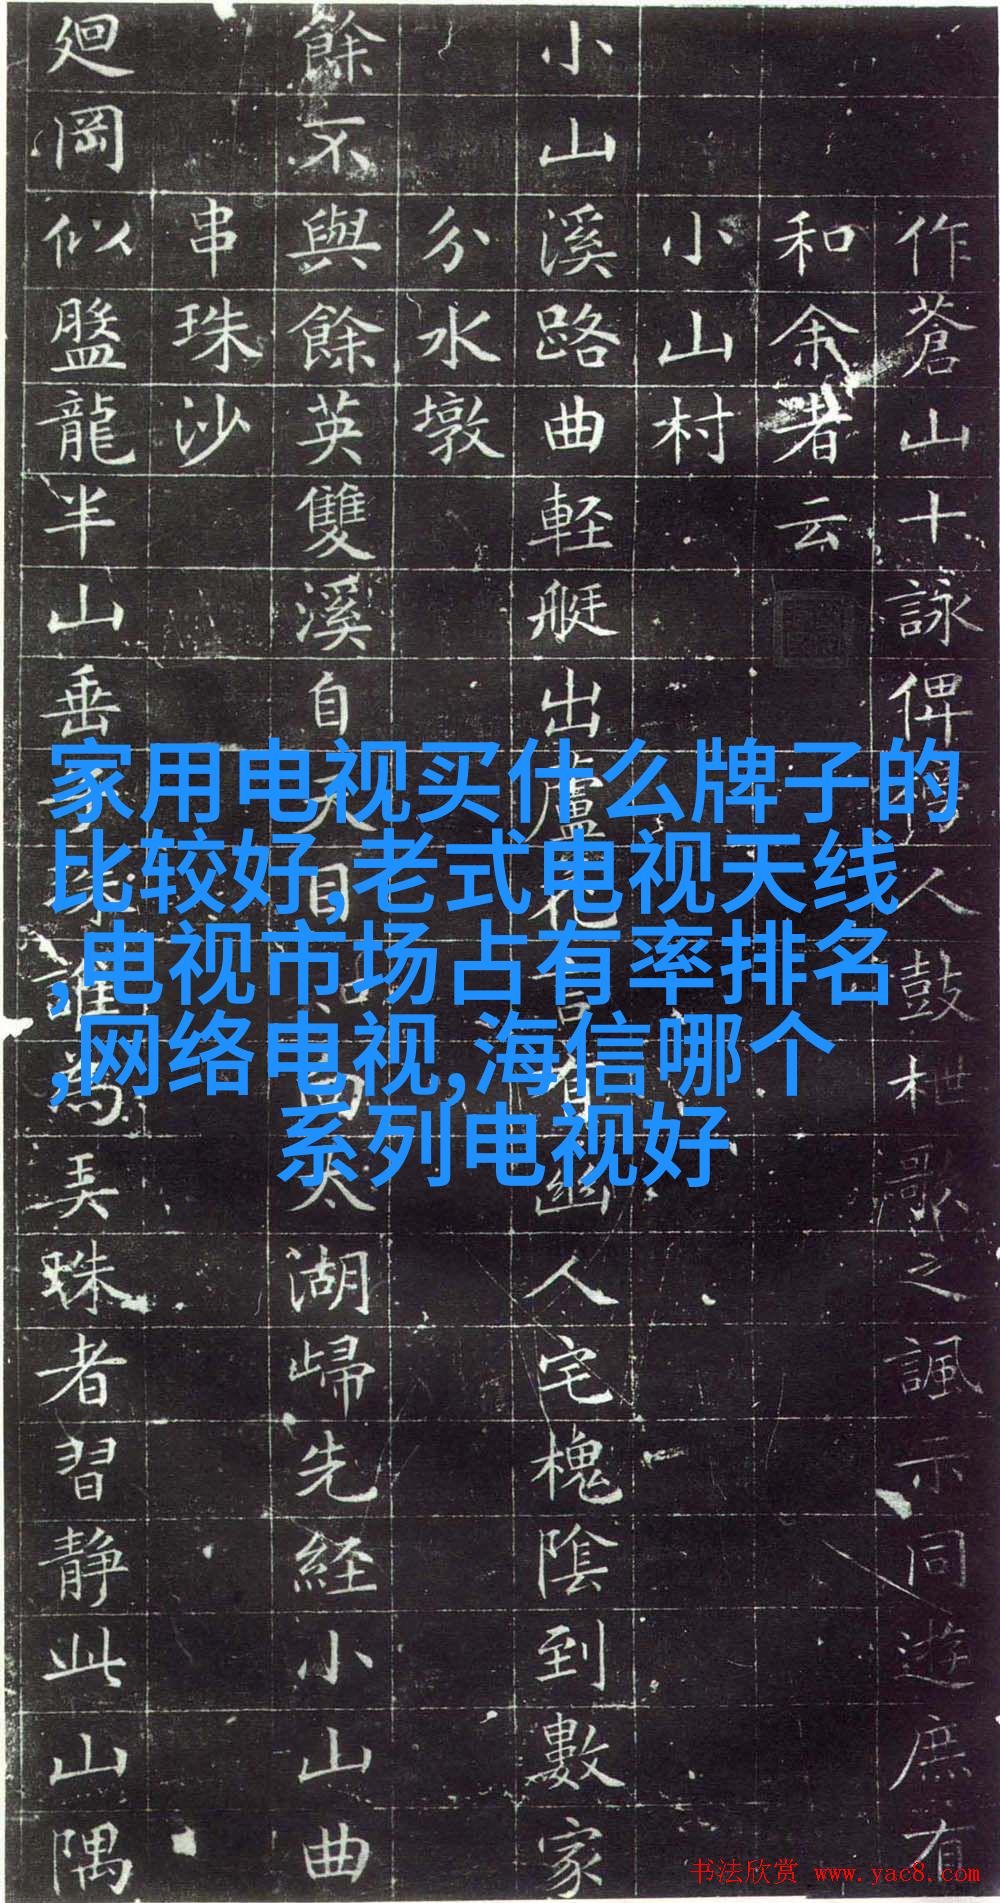 作蒼山十詠俾人鼓枻歌之諷示同遊庶有
和余者云
小山村
小山溪路曲軽艇出蘆花言有幽人宅槐陰到數家
分水墩
餘不與餘英雙溪自天目太湖歸先経小山曲
串珠沙
廻岡似盤龍半山垂珠誰為弄珠者習静此山隅
家用电视买什么牌子的
比较好,老式电视天线
,电视市场占有率排名
,网络电视,海信哪个
系列电视好
书法欣赏 www.yac8.com